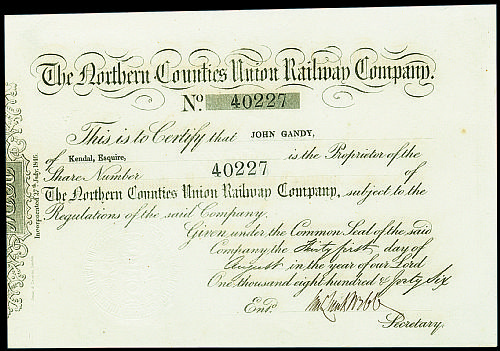 The Northern Counties Union Railway Company.
No. 40227
This is to Certify that JOHN GANDY,
of Kendal, Esquire, is the Proprietor of the
Share Number 40227 of
The Northern Counties Union Railway Company, subject to the
Regulations of the said Company.
Given under the Common Seal of the said
Company, the Thirty first day of
August in the year of our Lord
One thousand eight hundred & forty Six
Entd.
Secretary.
Incorporated 27th July, 1846.